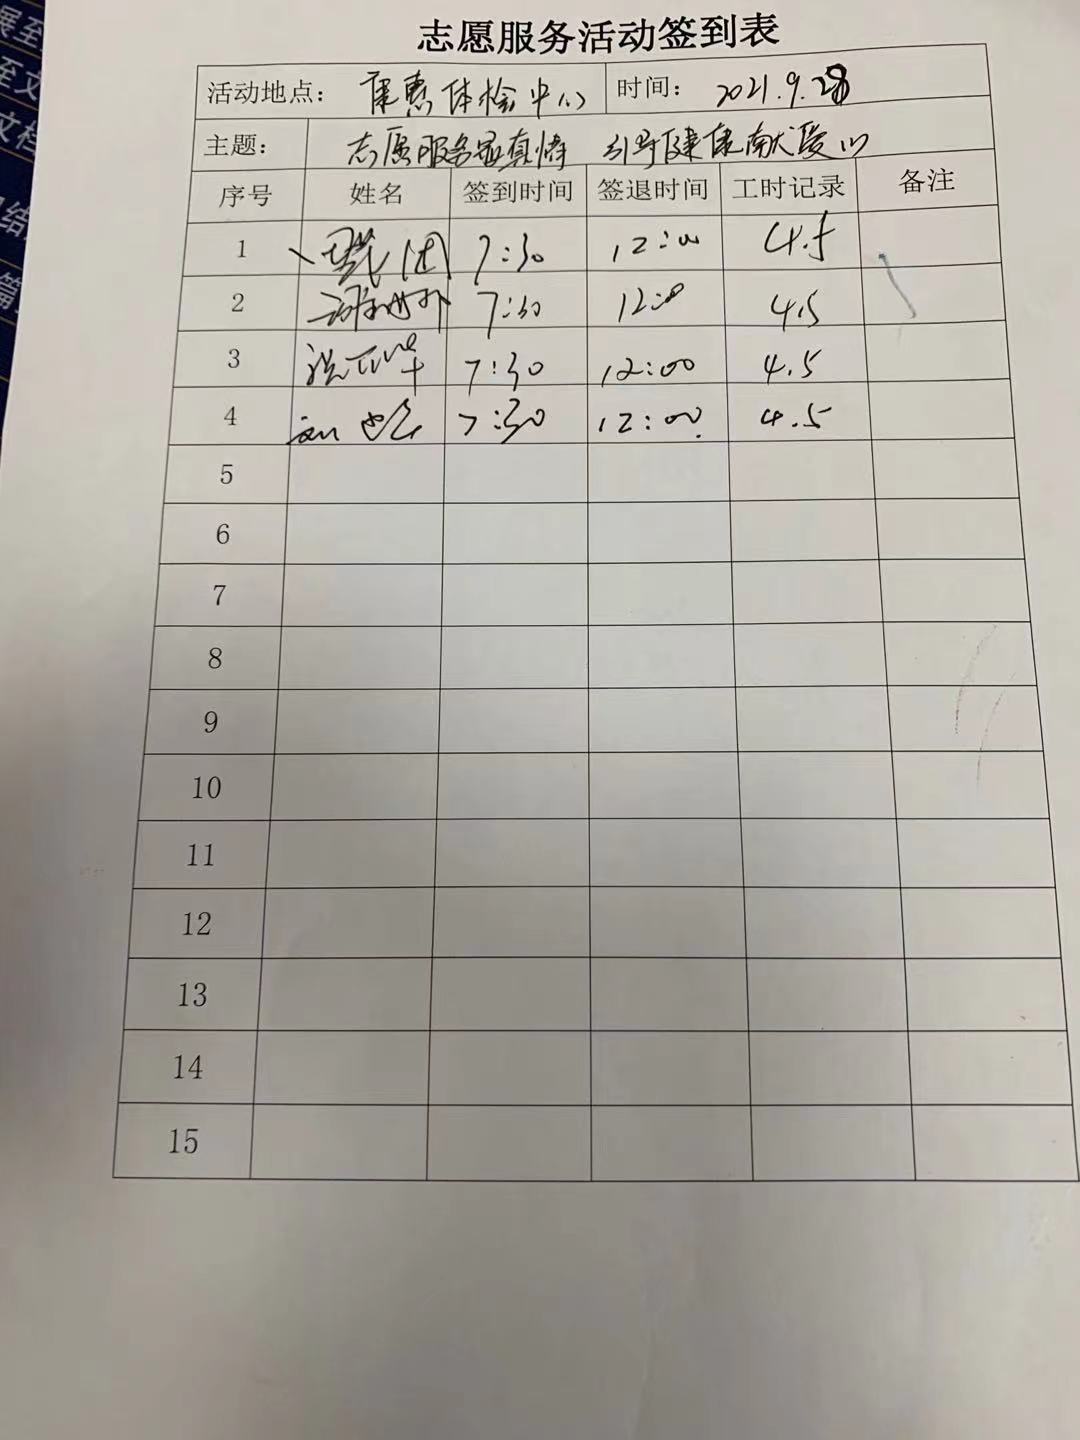 志愿服务活动签到表
活动地点： 康惠体检中心 时间： 2021.9.28
主题： 志愿服务最真情 引导健康献爱心
序号 姓名 签到时间 签退时间 工时记录 备注
1 7:30 12:00 4.5
2 7:30 12:00 4.5
3 7:30 12:00 4.5
4 7:30 12:00 4.5
5
6
7
8
9
10
11
12
13
14
15